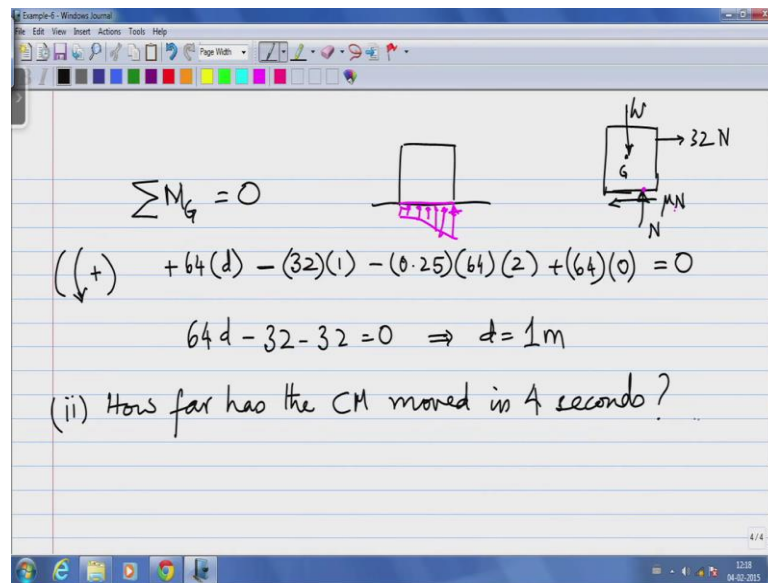 Example-6 - Windows Journal
File Edit View Insert Actions Tools Help
Page Width
W
32 N
G
μN
N
∑M_G = 0
(↓+) +64(d) - (32)(1) - (0.25)(64)(2) + (64)(0) = 0
64d - 32 - 32 = 0 ⇒ d = 1m
(ii) How far has the CM moved in 4 seconds?
4/4
12:18
04-02-2015